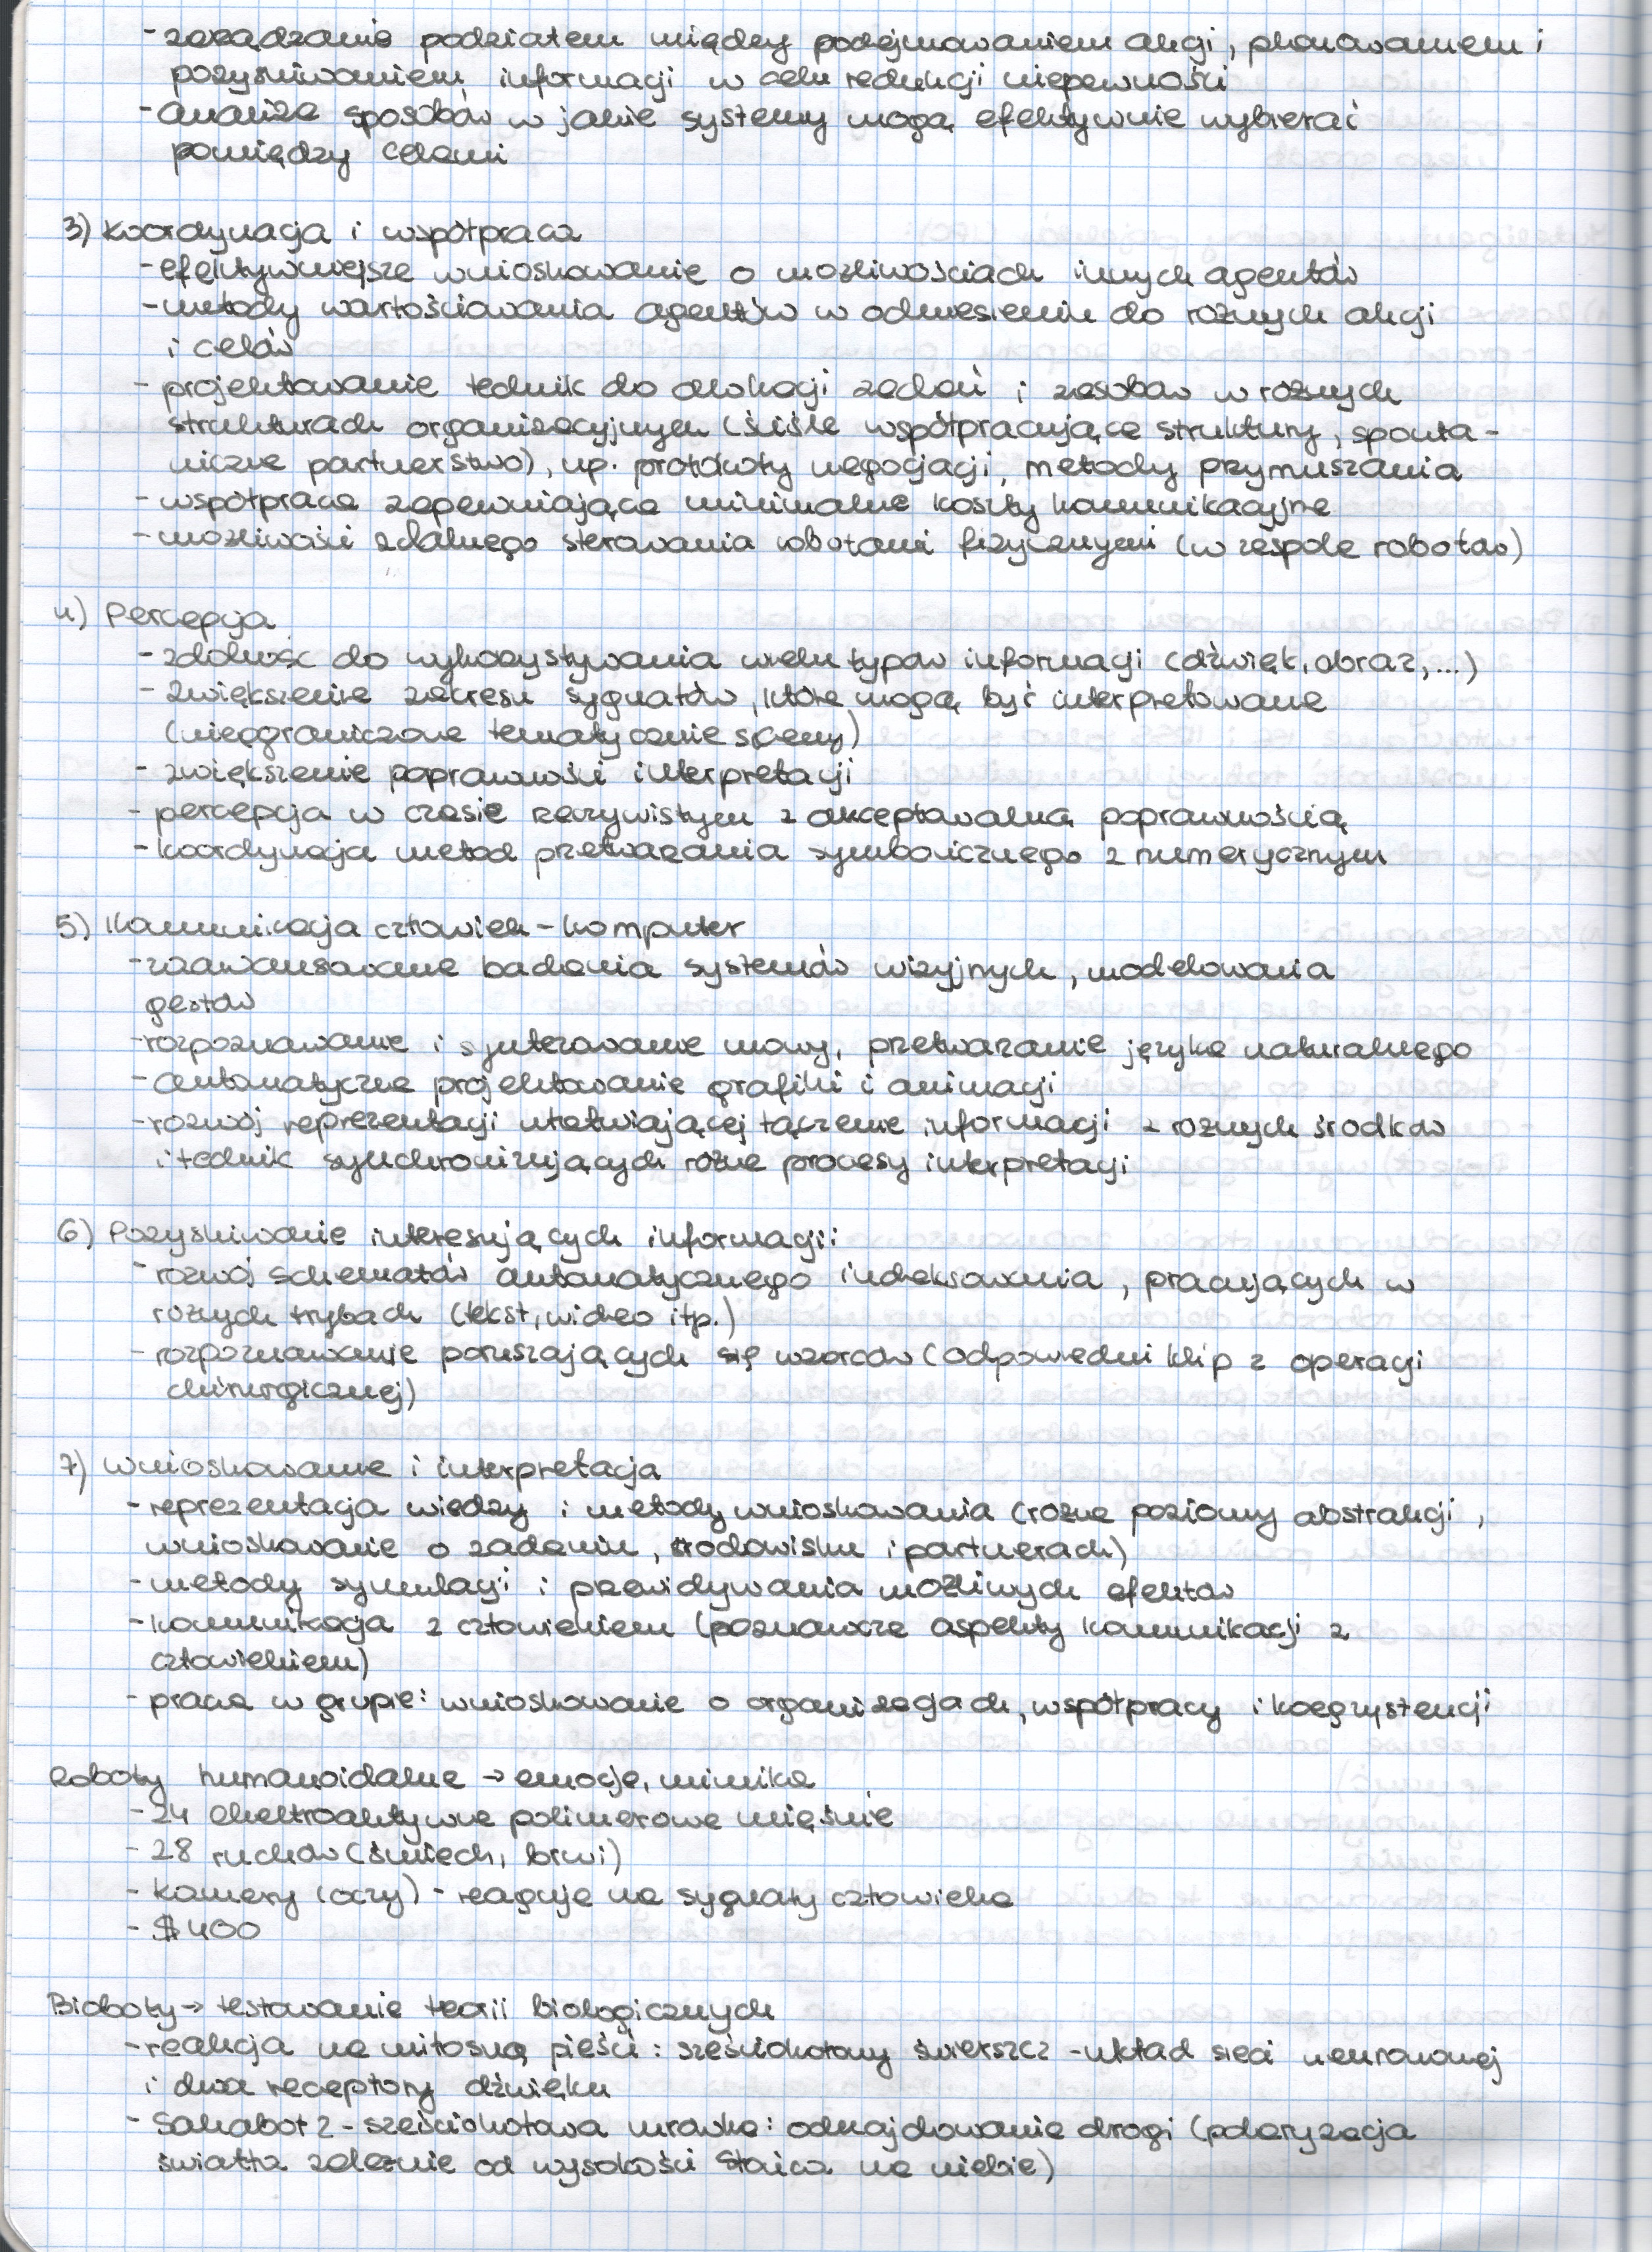 - zarządzanie podziałem między podejmowaniem akcji, planowaniem i
pozyskiwaniem informacji w celu redukcji niepewności
- analiza sposobów w jakie systemy mogą efektywnie wybierać
pomiędzy celami
3) Koordynacja i współpraca
- efektywniejsze wnioskowanie o możliwościach innych agentów
- metody wartościowania agentów w odniesieniu do różnych akcji
i celów
- projektowanie technik do alokacji zadań i zasobów w różnych
strukturach organizacyjnych (ściśle współpracujące struktury, sponta-
niczne partnerstwo), np. protokoły negocjacji, metody przymuszania
- współpraca zapewniająca minimalne koszty komunikacyjne
- możliwości zdalnego sterowania robotami fizycznymi (w zespole robotów)
4) Percepcja
- zdolność do wykorzystywania wielu typów informacji (dźwięk, obraz, ...)
- zwiększenie zakresu sygnałów, które mogą być interpretowane
(nieograniczone tematycznie sceny)
- zwiększenie poprawności interpretacji
- percepcja w czasie rzeczywistym z akceptowalną poprawnością
- koordynacja metod przetwarzania symbolicznego z numerycznym
5) Komunikacja człowiek - komputer
- zaawansowane badania systemów wizyjnych, modelowania
gestów
- rozpoznawanie i syntezowanie mowy, przetwarzanie języka naturalnego
- automatyczne projektowanie grafiki i animacji
- rozwój reprezentacji ułatwiającej łączenie informacji z różnych środków
i technik synchronizujących różne procesy interpretacji
6) Pozyskiwanie interesujących informacji:
- rozwój schematów automatycznego indeksowania, pracujących w
różnych trybach (tekst, wideo itp.)
- rozpoznawanie poruszających się wzorców (odpowiedni klip z operacji
chirurgicznej)
7) Wnioskowanie i interpretacja
- reprezentacja wiedzy i metody wnioskowania (różne poziomy abstrakcji,
wnioskowanie o zadaniu, środowisku i partnerach)
- metody symulacji i przewidywania możliwych efektów
- komunikacja z człowiekiem (poznawcze aspekty komunikacji z
człowiekiem)
- praca w grupie: wnioskowanie o organizacjach, współpracy i koegzystencji
Roboty humanoidalne → emocje, mimika
- 24 elektroaktywne polimerowe mięśnie
- 28 ruchów (śmiech, brwi)
- kamery (oczy) - reaguje na sygnały człowieka
- $400
Bioboty → testowanie teorii biologicznych
- reakcja na miłosną pieśń: sześciokołowy świerszcz - układ sieci neuronowej
i dwa receptory dźwięku
- Sahabot 2 - sześciokołowa mrówka: odnajdowanie drogi (polaryzacja
światła zależnie od wysokości Słońca na niebie)